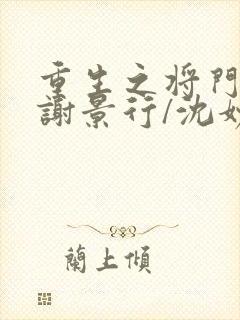 重生之将門
謝景行/沈妙
蘭上傾